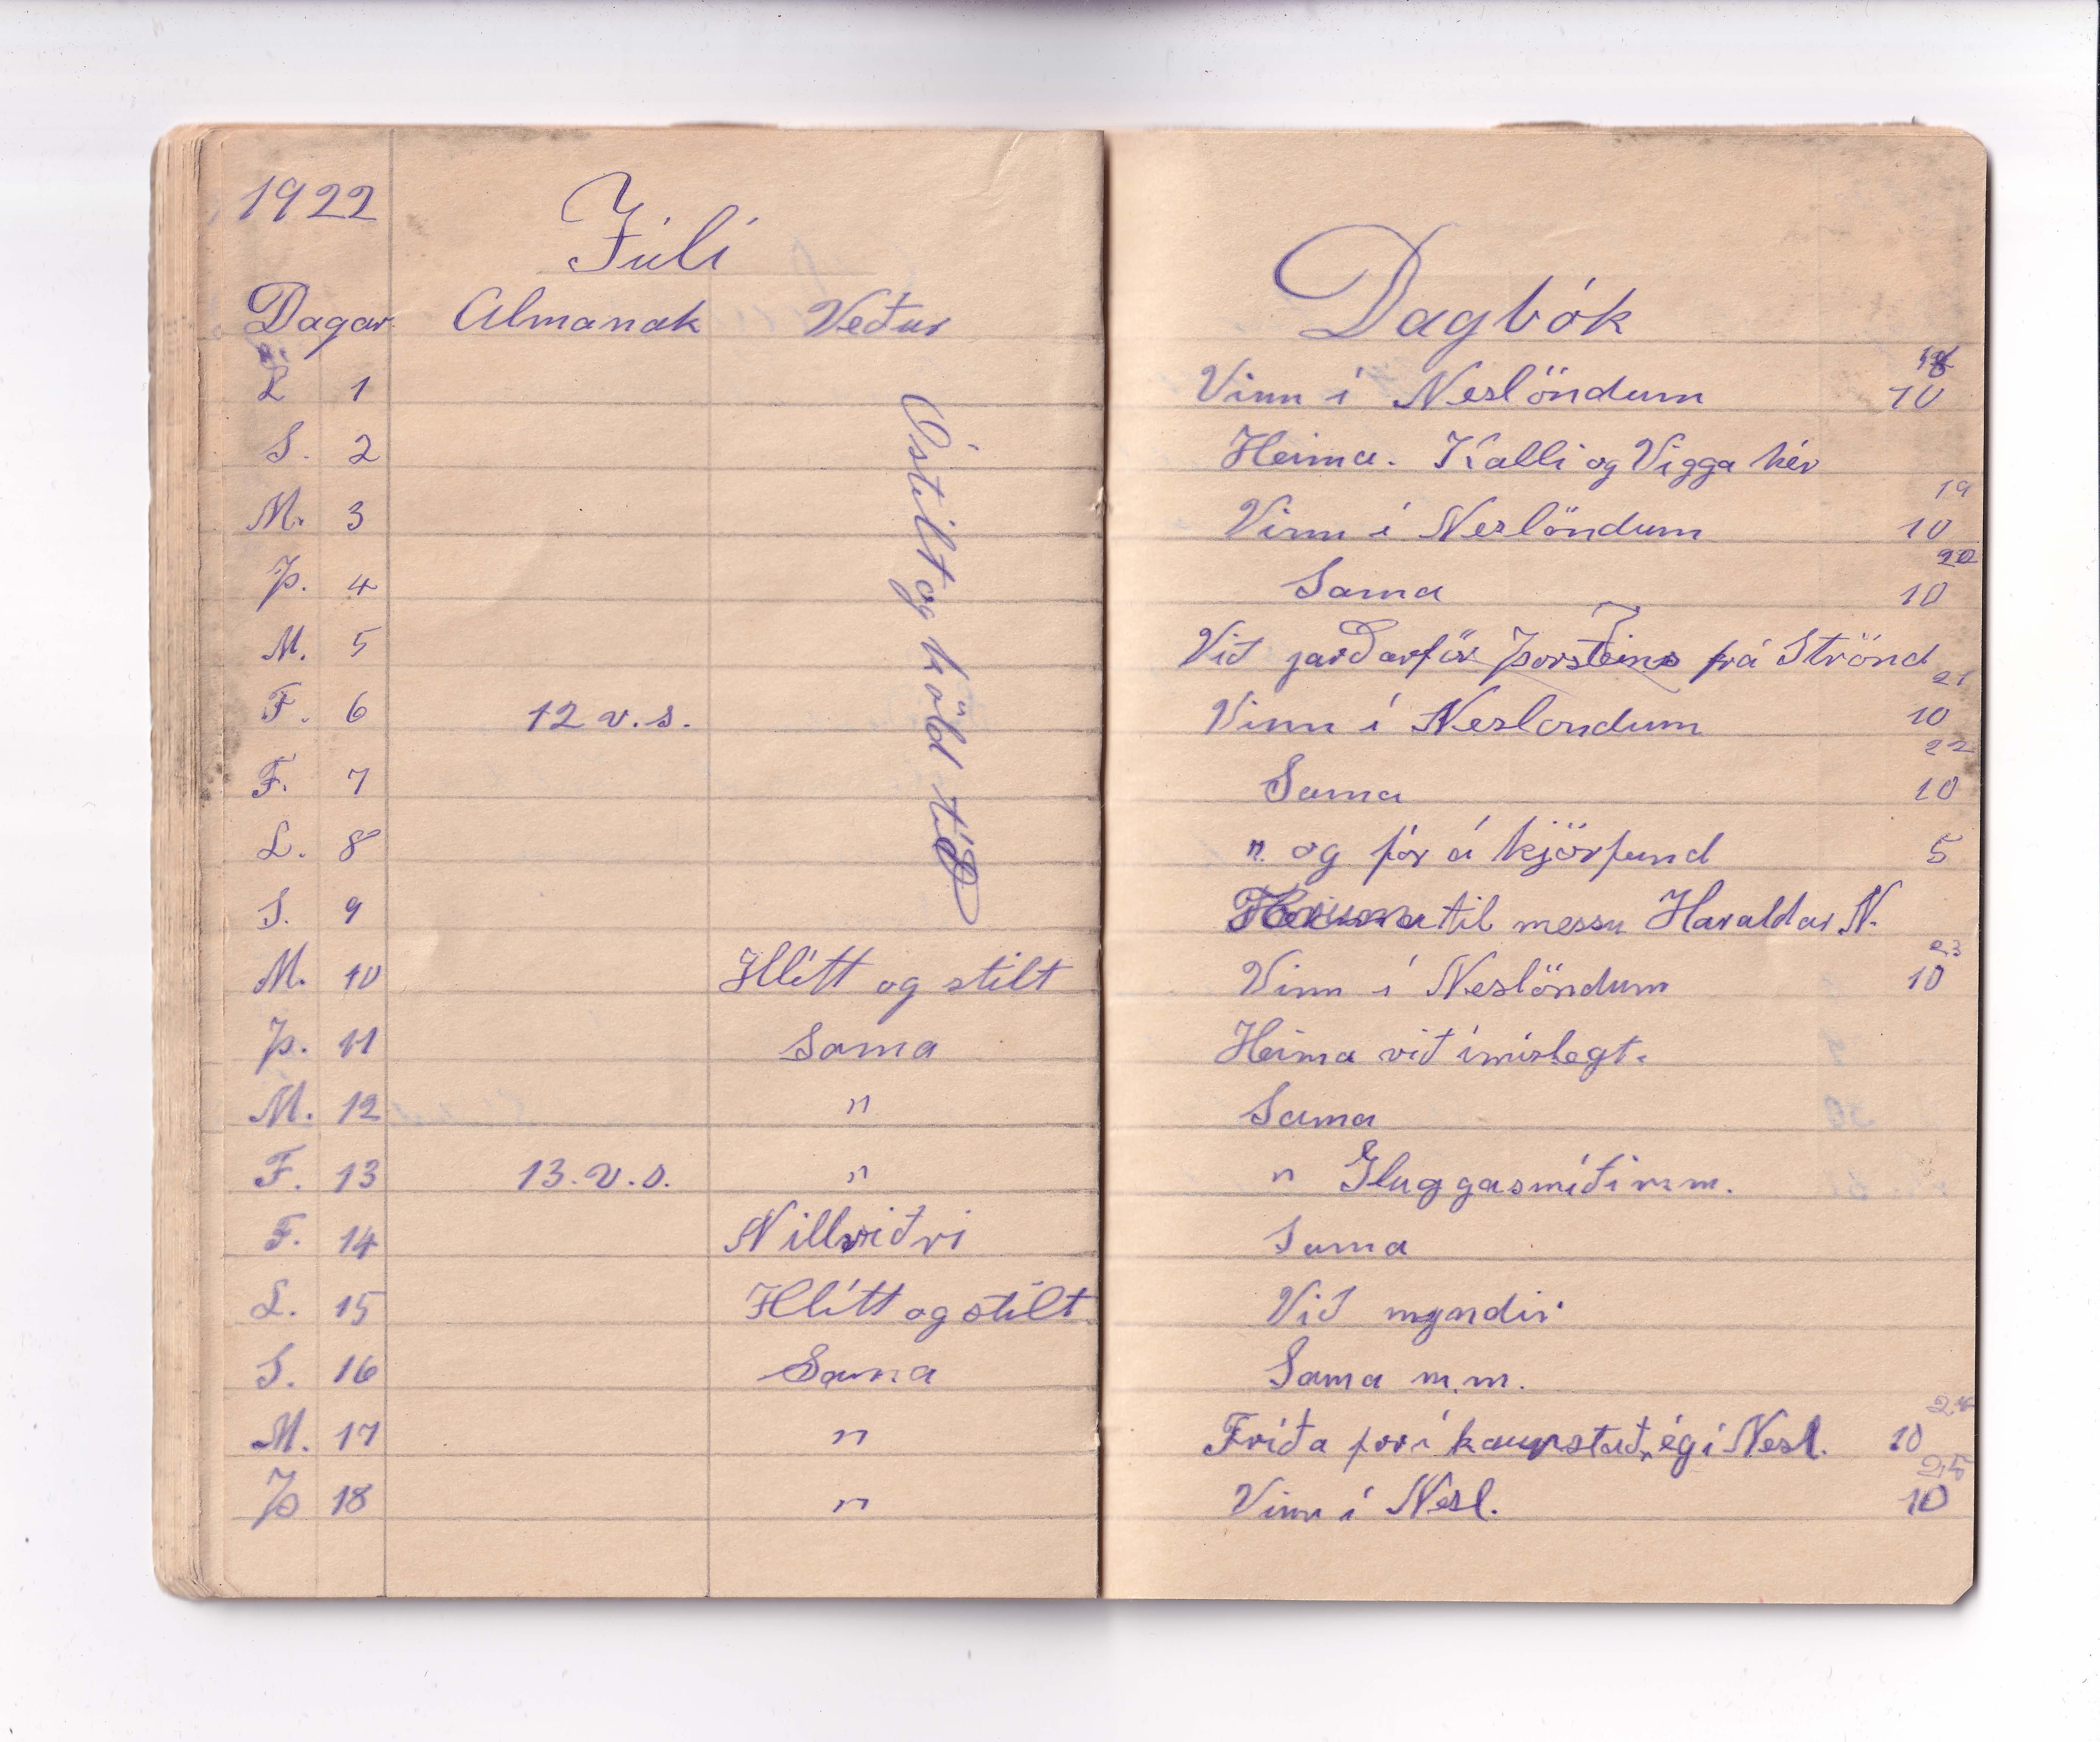 1922
Júlí
Dagar Almanak Veður
L 1
S. 2
M. 3
Þ. 4
M. 5
F. 6 12 v.s.
F. 7
L. 8
S. 9
Óstilt og köld tíð
M. 10 Hlítt og stilt
Þ. 11 Sama
M. 12 "
F. 13 13. v.s. "
F. 14 Nillviðri
L. 15 Hlítt og stilt
S. 16 Sama
M. 17 "
Þ 18 "
Dagbók
18
Vinn í Neslöndum 10
Heima. Kalli og Vigga hér
19
Vinn í Neslöndum 10
20
Sama 10
Við jarðarför Þorsteins frá Strönd
21
Vinn í Neslondum 10
22
Sama 10
" og fór á kjörfund 5
til messu Haraldar N.
23
Vinn í Neslöndum 10
Heima við ímislegt.
Sama
" Gluggasmíði m.m.
Sama
Við myndir
Sama m.m.
24
Fríða fór í kaupstað, ég í Nesl. 10
25
Vinn í Nesl. 10